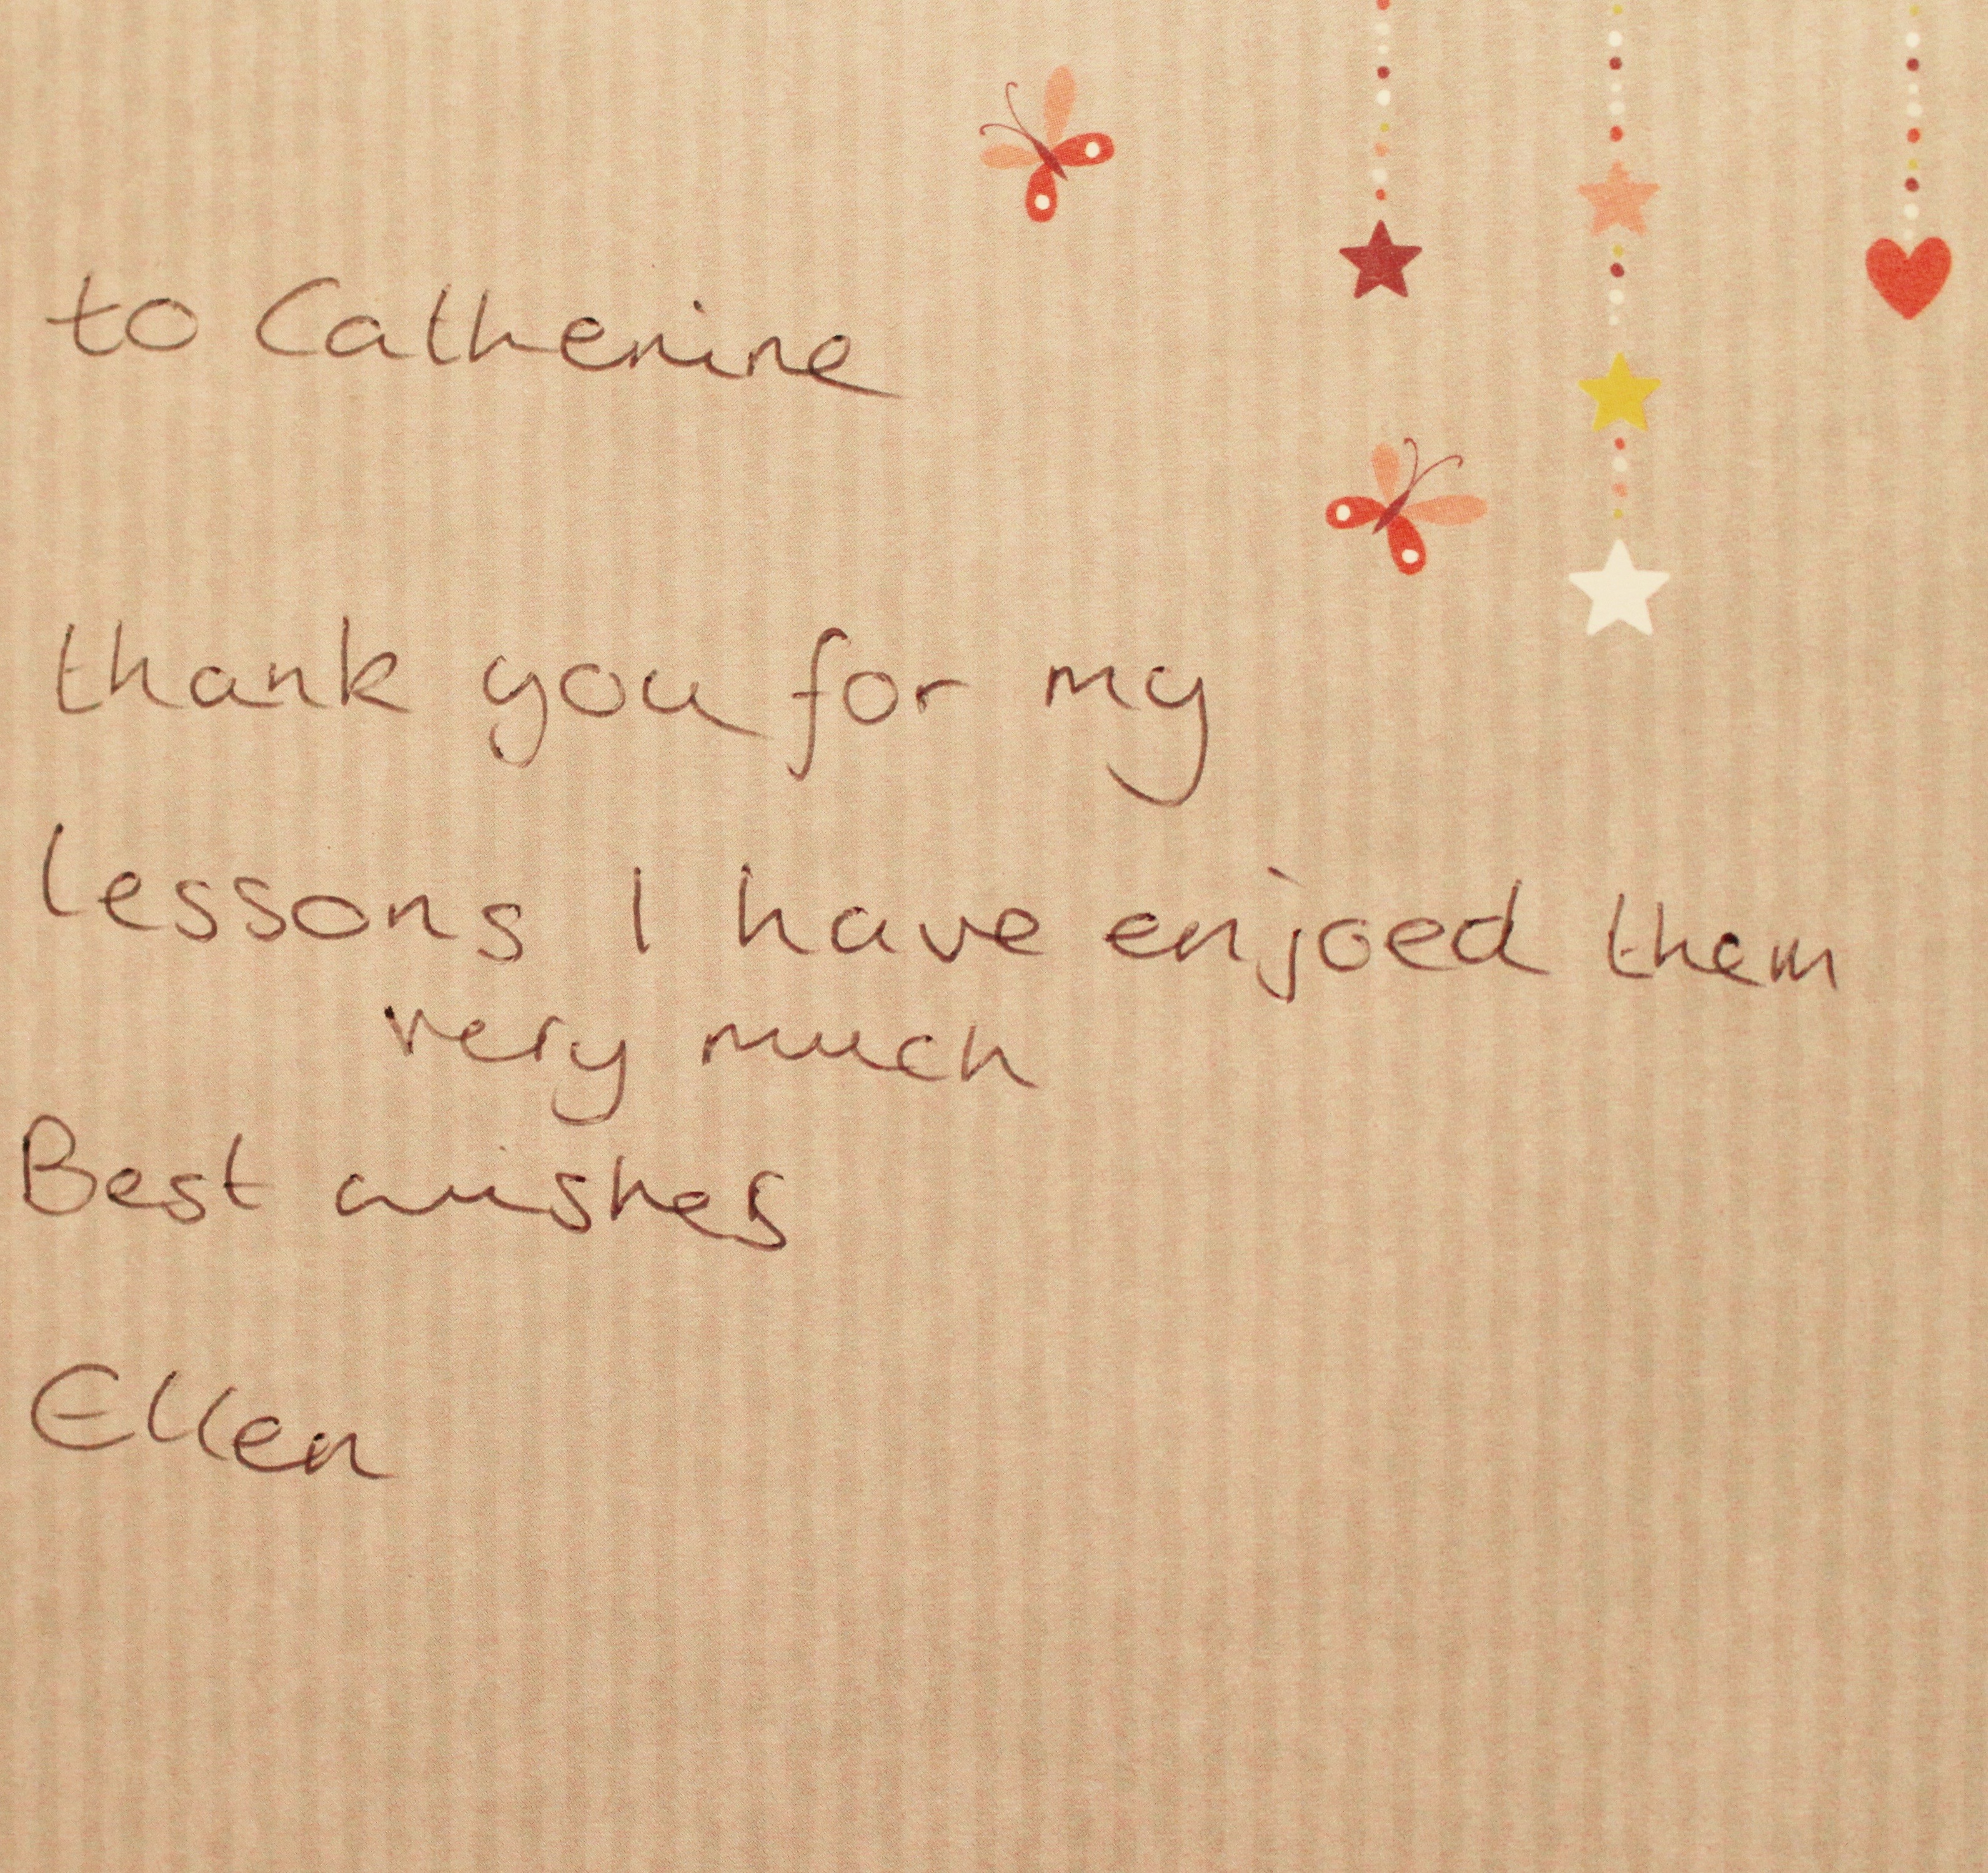 to Catherine
thank you for my
lessons I have enjoed them
very much
Best wishes
Ellen